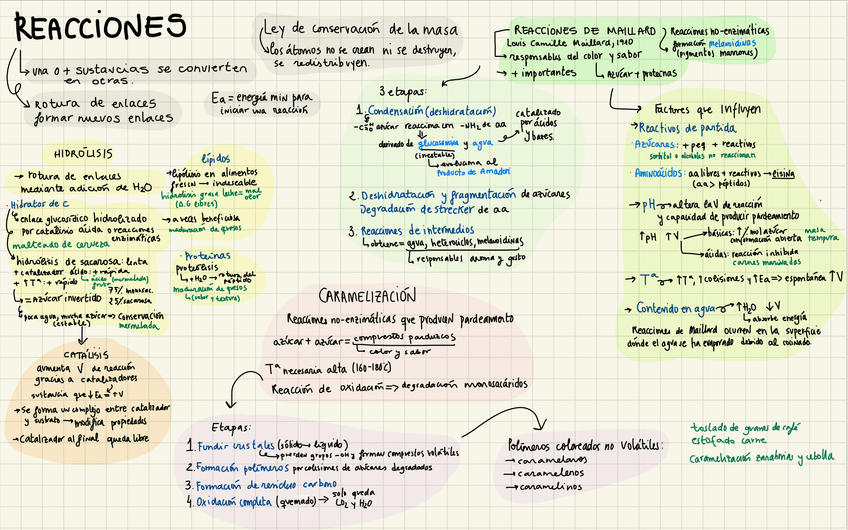 REACCIONES
→ una o + sustancias se convierten
en otras.
→ Rotura de enlaces
formar nuevos enlaces
Ley de conservación de la masa
los átomos no se crean ni se destruyen,
se redistribuyen.
Ea = energía min para
iniciar una reacción
REACCIONES DE MAILLARD
Louis Camille Maillard, 1910
→ responsables del color y sabor
→ + importantes
Azúcar + proteínas
Reacciones no-enzimáticas
formación melanoidinas
(pigmentos marrones)
3 etapas:
1. Condensación (deshidratación)
azúcar reacciona con -NH2 de aa
derivado de glucosamina y agua
(inestable)
evoluciona al
Producto de Amadori
catalizado
por ácidos
y bases.
2. Deshidratación y fragmentación de azúcares
Degradación de strecker de aa
3. Reacciones de intermedios
obtiene = agua, heterociclos, melanoidinas
responsables aroma y gusto
Factores que Influyen
→ Reactivos de partida
· Azúcares: + peq + reactivos
sorbitol o alcoholes no reaccionan
· Aminoácidos: aa libres + reactivos → lisina
(aa > péptidos)
→ pH → altera la V de reacción
y capacidad de producir pardeamiento
↑pH ↑V
→ básicas: ↑/mol azúcar
conformación abierta
masa
tempura
→ ácidas: reacción inhibida
carnes marinadas
→ Tª → ↑Tª, ↑colisiones y ↑Ea => espontánea ↑V
→ Contenido en agua → ↑H2O ↓V
absorbe energía
Reacciones de Maillard ocurren en la superficie
donde el agua se ha evaporado debido al cocinado
HIDRÓLISIS
→ rotura de enlaces
mediante adición de H2O
· Hidratos de C
→ enlace glucosídico hidrolizado
por catálisis ácida o reacciones
enzimáticas
malteado de cerveza
→ hidrólisis de sacarosa: lenta
+ catalizador ácido: + rápida
+ ↑Tª: + rápido
ácido (mermelada)
fruta
→ = Azúcar invertido
75% monosac.
25% sacarosa
→ poca agua, mucha azúcar → Conservación
(estable)
mermelada
lípidos
→ lipólisis en alimentos
frescos → indeseable
hidrólisis grasa leche = mal
olor
(A.G libres)
→ a veces beneficiosa
maduración de quesos
· Proteínas
proteólisis
+ H2O → rotura del
péptido
maduración de quesos
(olor y textura)
CATÁLISIS
aumenta V de reacción
gracias a catalizadores
sustancia que ↓Ea = ↑V
→ Se forma un complejo entre catalizador
y sustrato → modifica propiedades
→ Catalizador al final queda libre
CARAMELIZACIÓN
Reacciones no-enzimáticas que producen pardeamiento
azúcar + azúcar = compuestos parduzcos
color y sabor
Tª necesaria alta (160-180ºC)
Reacción de oxidación => degradación monosacáridos
Etapas:
1. Fundir cristales (sólido → líquido)
pierden grupos -OH y forman compuestos volátiles
2. Formación polímeros por colisiones de azúcares degradados
3. Formación de residuo carbono
4. Oxidación completa (quemado) →
solo queda
CO2 y H2O
Polímeros coloreados no volátiles:
→ caramelanos
→ caramelenos
→ caramelinos
tostado de granos de café
estofado carne
Caramelización zanahorias y cebolla